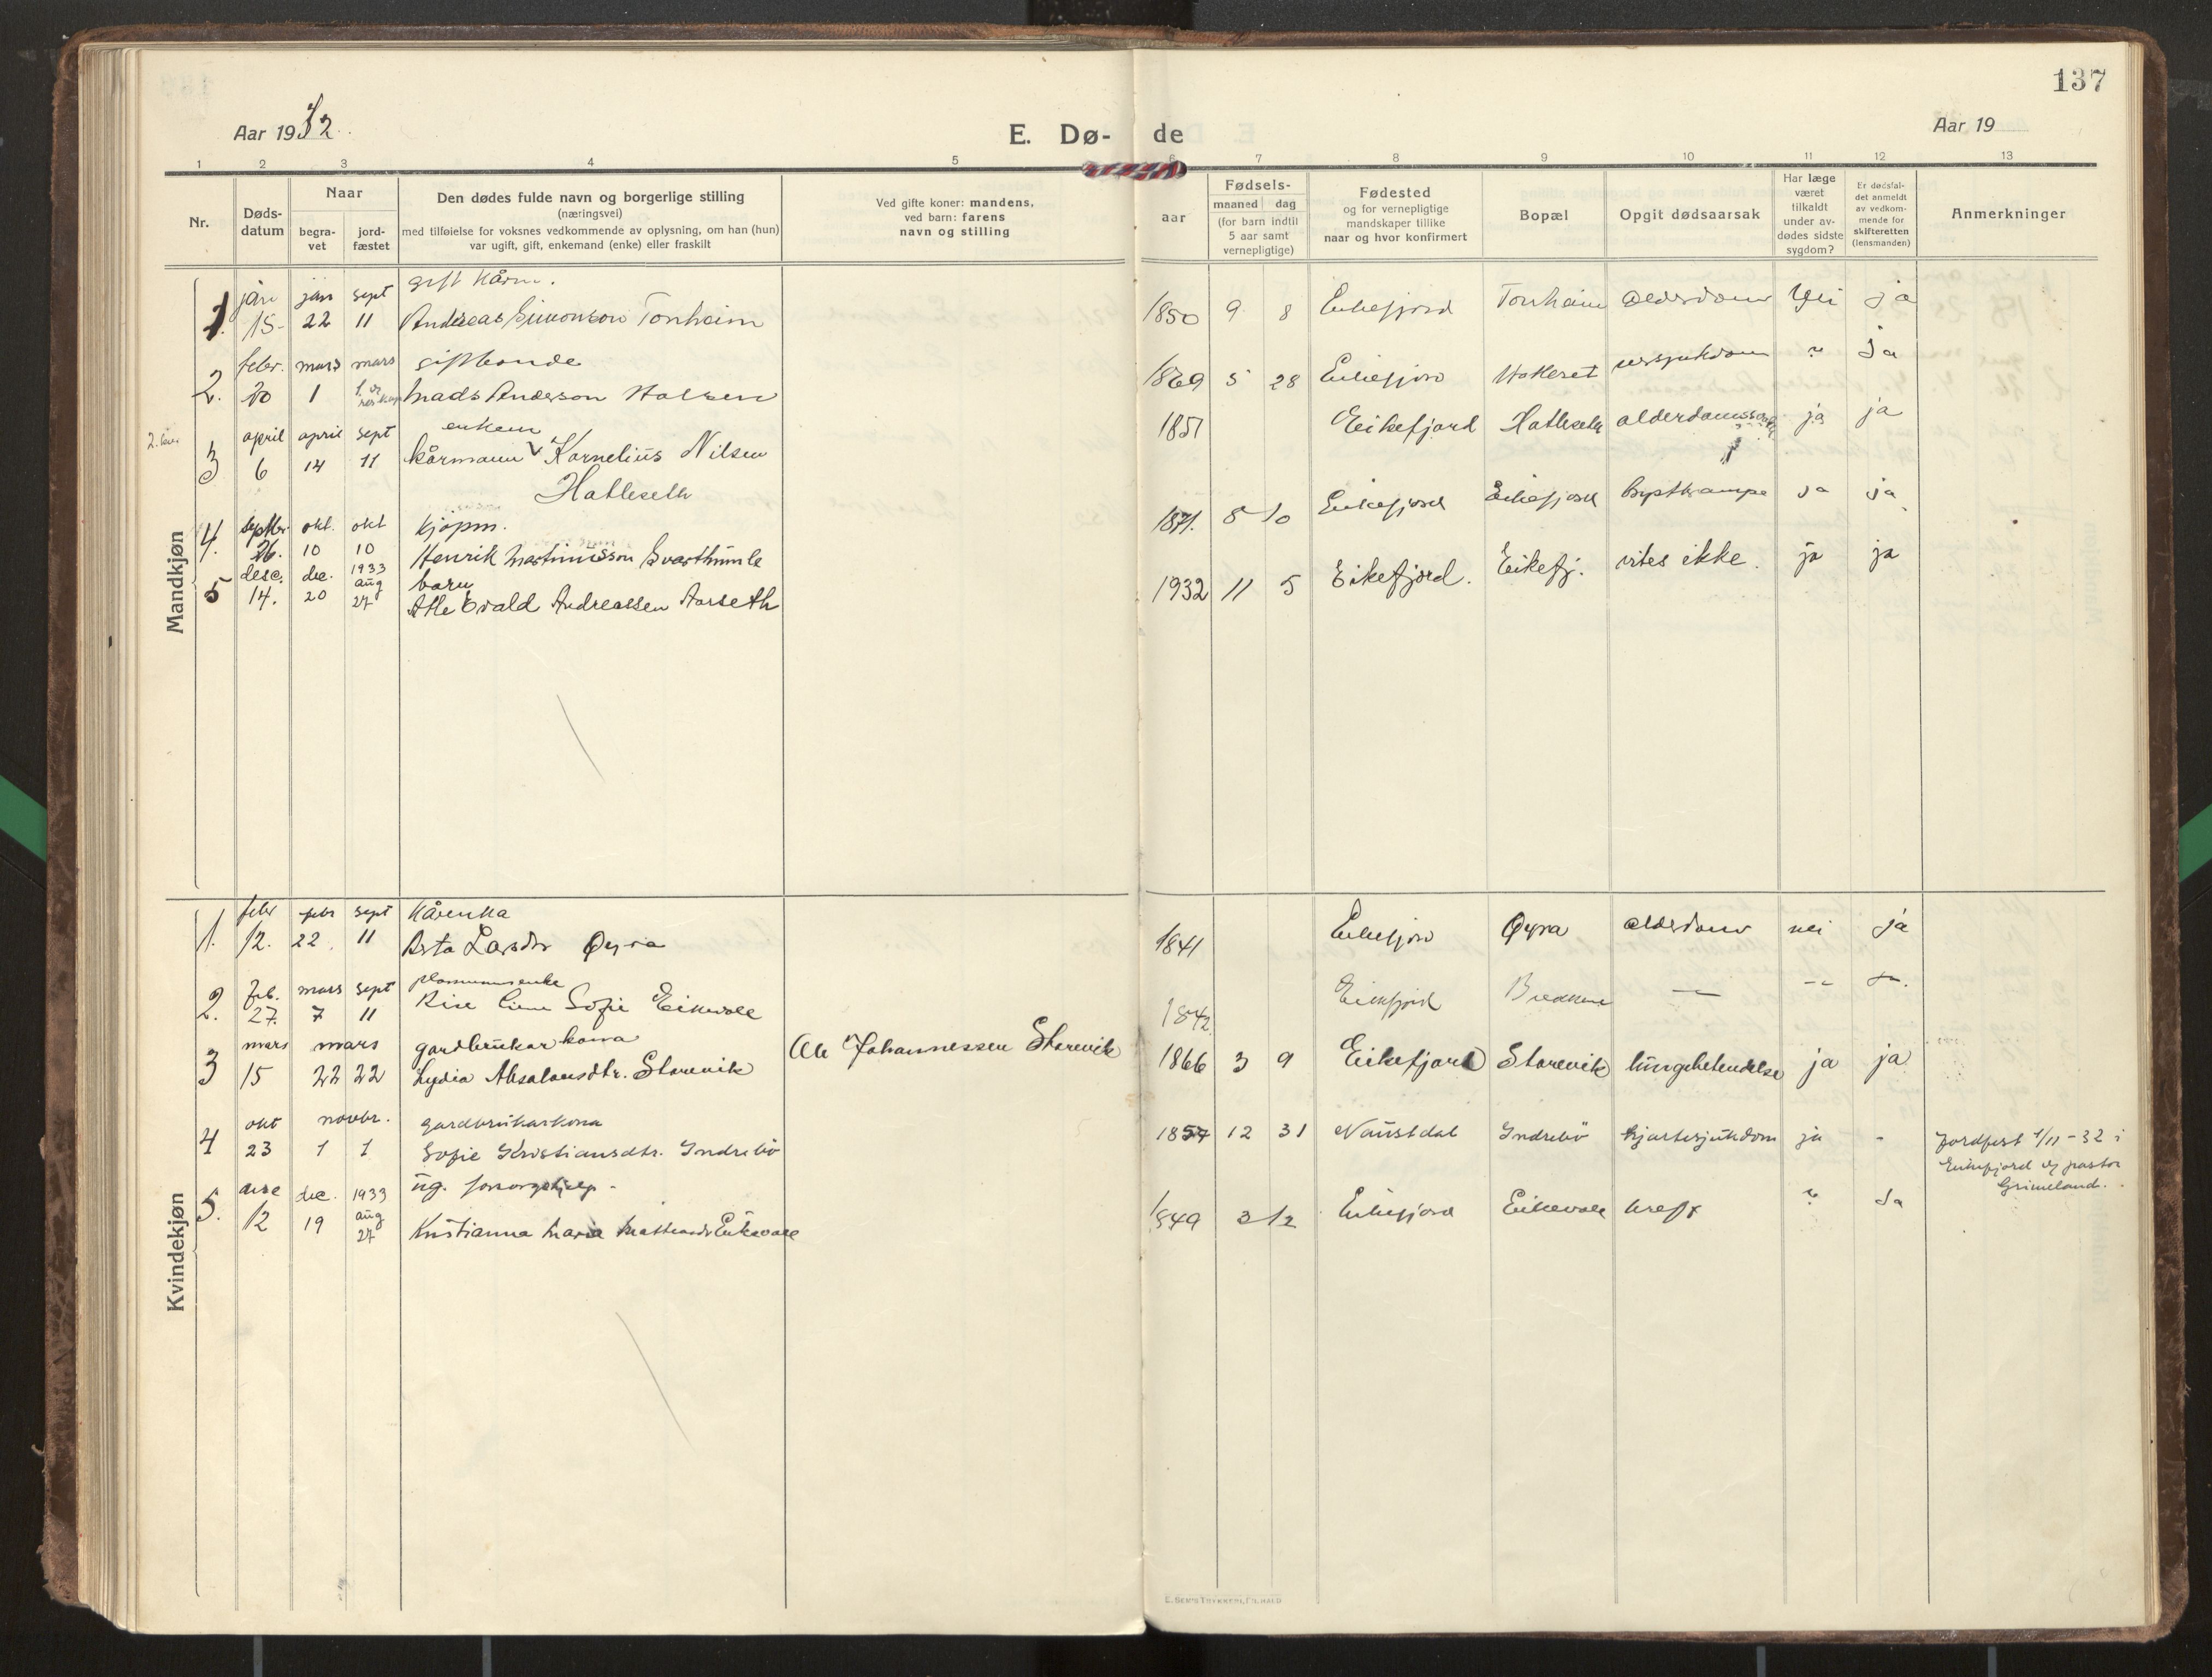 137
Aar 1932.
E. Dø- de
Aar 19
1 2 3 4 5 6 7 8 9 10 11 12 13
Nr.
Døds-
datum
Naar
begra-
vet
jord-
fæstet
Den dødes fulde navn og borgerlige stilling
(næringsvei)
med tilføielse for voksnes vedkommende av oplysning, om han (hun)
var ugift, gift, enkemand (enke) eller fraskilt
Ved gifte koner: mandens,
ved barn: farens
navn og stilling
aar
Fødsels-
maaned dag
(for barn indtil
5 aar samt
vernepligtige)
Fødested
og for vernepligtige
mandskaper tillike
naar og hvor konfirmert
Bopæl
Opgit dødsaarsak
Har læge
været
tilkaldt
under av-
dødes sidste
sygdom?
Er dødsfal-
det anmeldt
av vedkom-
mende for
skifteretten
(lensmanden)
Anmerkninger
Mandkjøn
jan jan sept gift kårm.
1. 15 22 11 Andreas Simonson Tonheim 1850 9 8 Eikefjord Tonheim alderdom nei ja
febr. mars mars gift bonde
2. 20 1 Mads Anderson 1869 5 28 Eikefjord ja
april april sept enkem
3 6 14 11 kårmann Kornelius Nilsen 1851 Eikefjord Hatleseth ja ja
Hatleseth
septbr okt. okt kjøpm.
4. 26. 10 10 Henrik Martinusson Svarthumle 1871. 8 10 Eikefjord Eikefjord ja ja
desc. dec. 1933 barn
5 14. 20 aug Atle Evald Andreassen Aarseth 1932 11 5 Eikefjord. Eikefj. vites ikke. ja ja
27
Kvindekjøn
febr febr sept
1. 12. 22. 11 Larsdtr Øyra 1841 Eikefjord Øyra alderdom nei ja
feb. mars sept plassmannsenke
2. 27. 7 11 Sofie Eikevoll 1842 Eikefjord
mars mars gardbrukarkona
3 15 22 22 Lydia Absalonsdtr. Storevik Ole Johannessen Storevik 1866 3 9 Eikefjord Storevik lungebetendelse ja ja
okt novbr. gardbrukarkona
4 23 1 1 Sofie Kristiansdtr. Indrebö 1857 12 31 Naustdal Indrebö hjartesjukdom ja - Jordfest 1/11-32 i
Eikefjord av pastor
Grimeland.
dec. 1933 ug.
5. 12 19 aug Kristianna Marie Eikevoll 1849 3 12 Eikefjord Eikevoll kreft ja
27